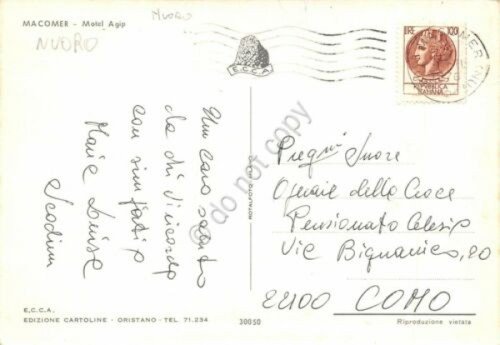 MACOMER - Motel Agip
NUORO
NUORO
E.C.C.A.
LIRE 100
REPVBBLICA
ITALIANA
MACOMER
Un caro saluto
da chi vi ricorda
con simpatia
Maria Luisa
do not copy
Preg.mi Suore
Operaie della Croce
Pensionato Celesia
Via Bignanico, 20
22100 COMO
E.C.C.A.
EDIZIONE CARTOLINE - ORISTANO - TEL 71.234
30050
Riproduzione vietata